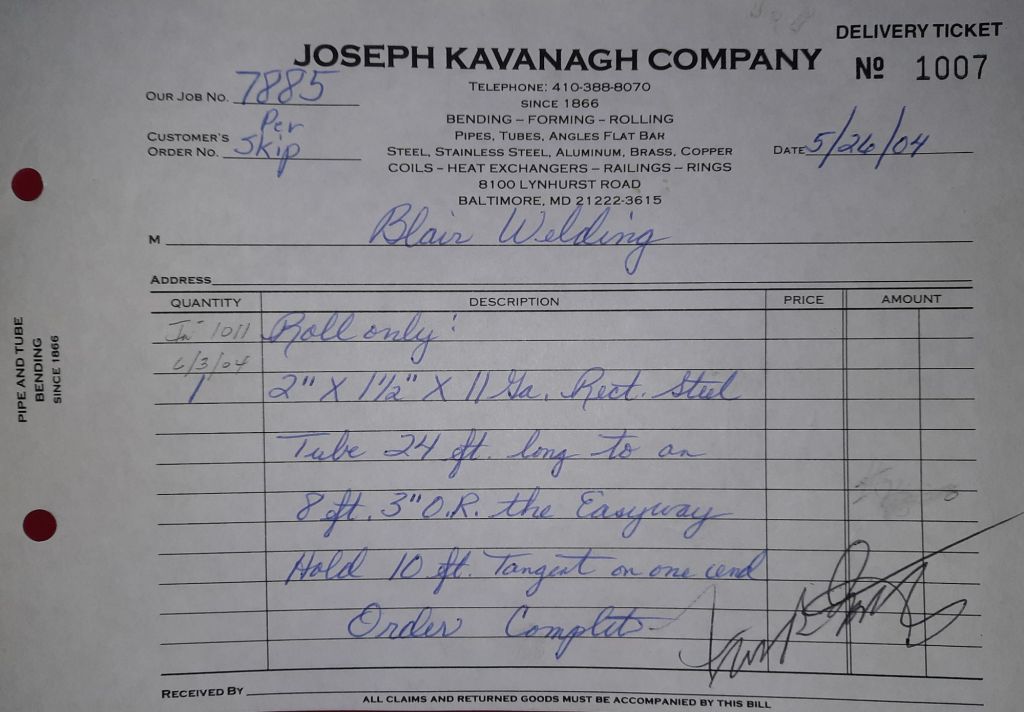 DELIVERY TICKET
JOSEPH KAVANAGH COMPANY
Nº 1007
TELEPHONE: 410-388-8070
OUR JOB NO. 7885
SINCE 1866
BENDING – FORMING – ROLLING
Per
CUSTOMER'S
PIPES, TUBES, ANGLES FLAT BAR
ORDER NO. Skip
STEEL, STAINLESS STEEL, ALUMINUM, BRASS, COPPER
DATE 5/26/04
COILS – HEAT EXCHANGERS – RAILINGS – RINGS
8100 LYNHURST ROAD
BALTIMORE, MD 21222-3615
M Blair Welding
ADDRESS
QUANTITY DESCRIPTION PRICE AMOUNT
In 1011 Roll only:
6/3/04
1 2" X 1½" X 11 Ga. Rect. Steel
Tube 24 ft. long to an
8 ft. 3" O.R. the Easyway
Hold 10 ft. Tangent on one end
Order Complete
RECEIVED BY
ALL CLAIMS AND RETURNED GOODS MUST BE ACCOMPANIED BY THIS BILL
PIPE AND TUBE
BENDING
SINCE 1866